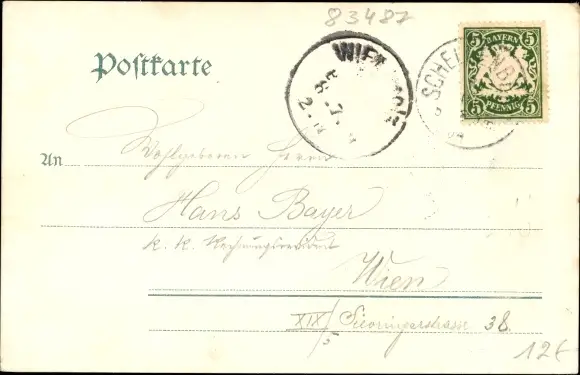 83487
BAYERN
5 5
5 PFENNIG 5
Postkarte
WIEN
SCHEL
An Wohlgeboren Herrn
Hans Bayer
k. k. Rechnungsrevident
Wien
XIX/5 Sieveringerstrasse 38.
12€